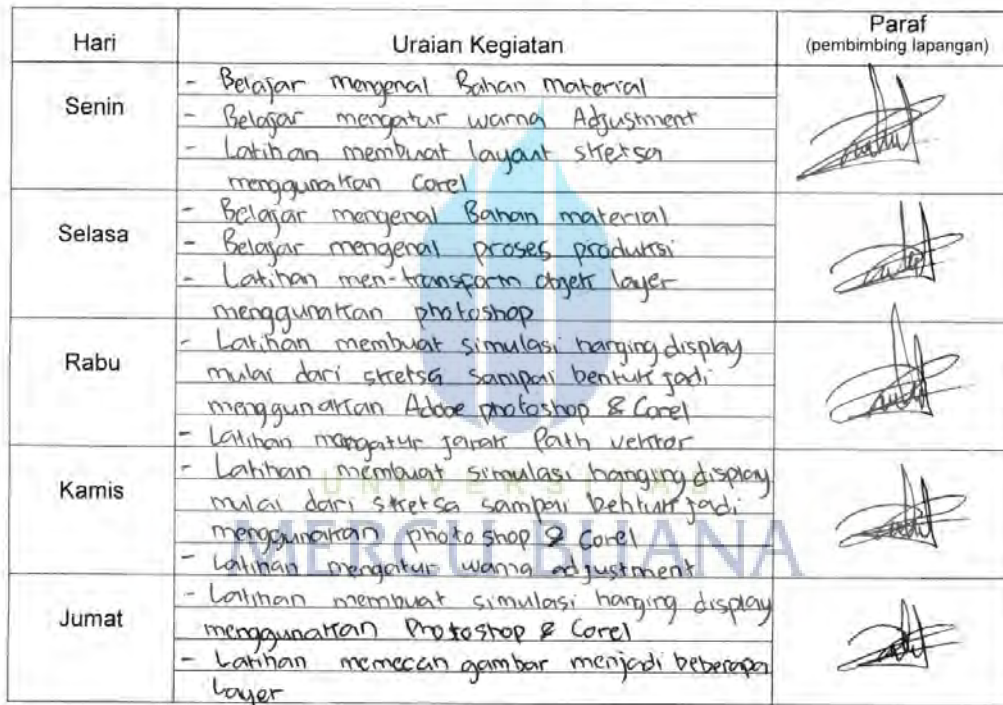 Hari Uraian Kegiatan Paraf
(pembimbing lapangan)
Senin
- Belajar mengenal Bahan material
- Belajar mengatur warna Adjustment
- Latihan membuat layout sketsa
menggunakan Corel
Selasa
- Belajar mengenal Bahan material
- Belajar mengenal proses produksi
- Latihan men-transform objek layer
menggunakan photoshop
Rabu
- Latihan membuat simulasi hanging display
mulai dari sketsa sampai bentuk jadi
menggunakan Adobe photoshop & Corel
- Latihan mengatur jarak Path vektor
Kamis
- Latihan membuat simulasi hanging display
mulai dari sketsa sampai bentuk jadi
menggunakan photo shop & Corel
- Latihan mengatur warna adjustment
Jumat
- Latihan membuat simulasi hanging display
menggunakan Photoshop & Corel
- Latihan memecah gambar menjadi beberapa
layer
UNIVERSITAS
MERCU BUANA